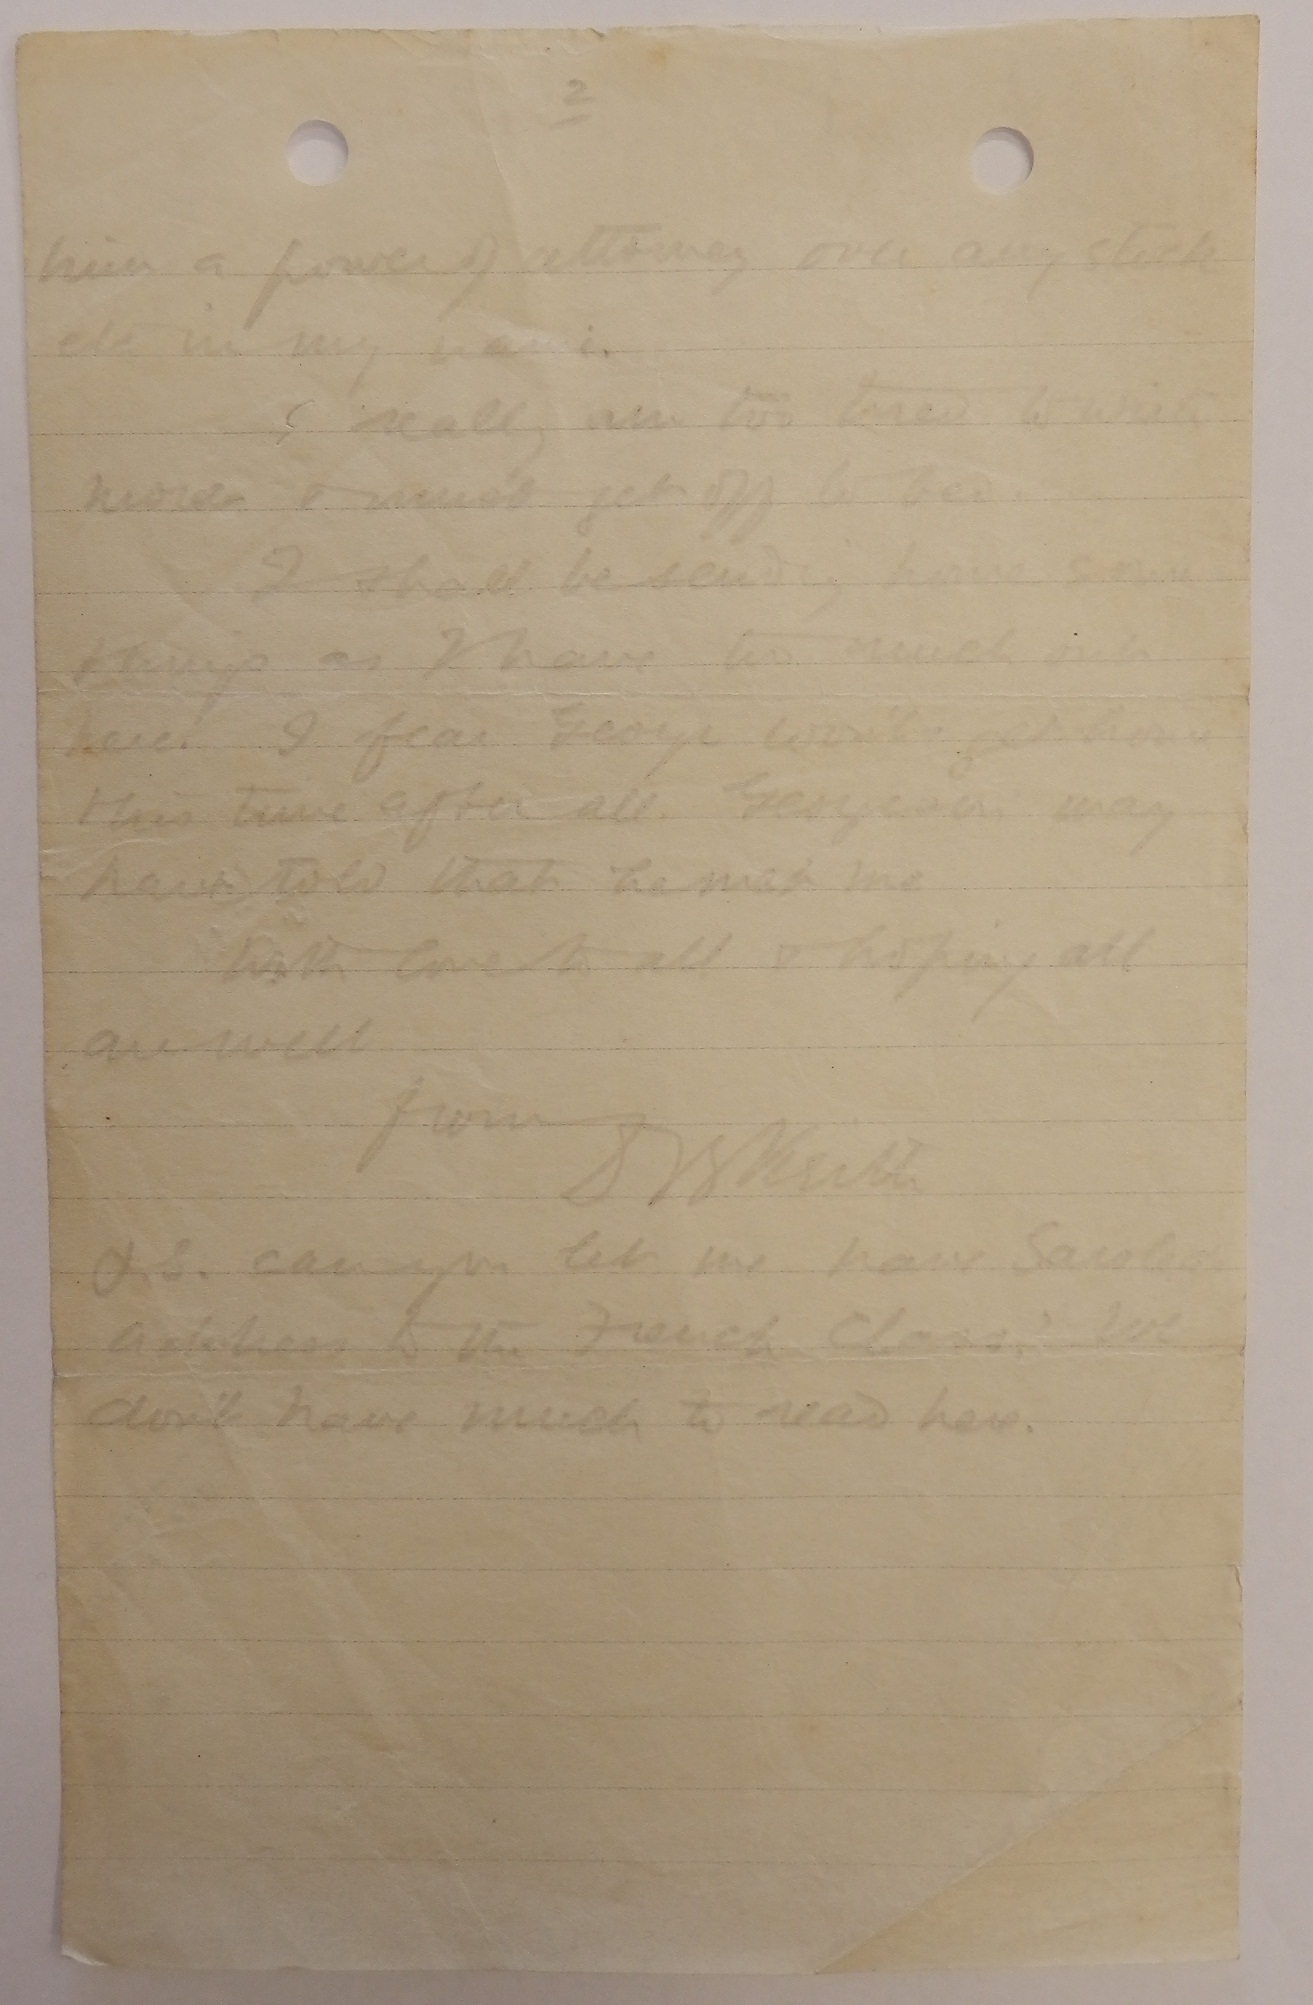 2
him a power of attorney over any stock
etc in my name.
I really am too tired to write
more & must get off to bed.
I shall be sending home some
things as I have too much out
here. I fear George won't get home
this time after all. may
have told that he met me
With love to all & hoping all
are well
from
P.S. can you let me have
address to the French Class? We
don't have much to read here.